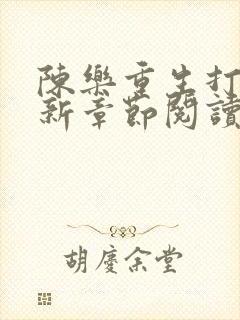 陳樂重生打
新章節閱讀
胡慶余堂